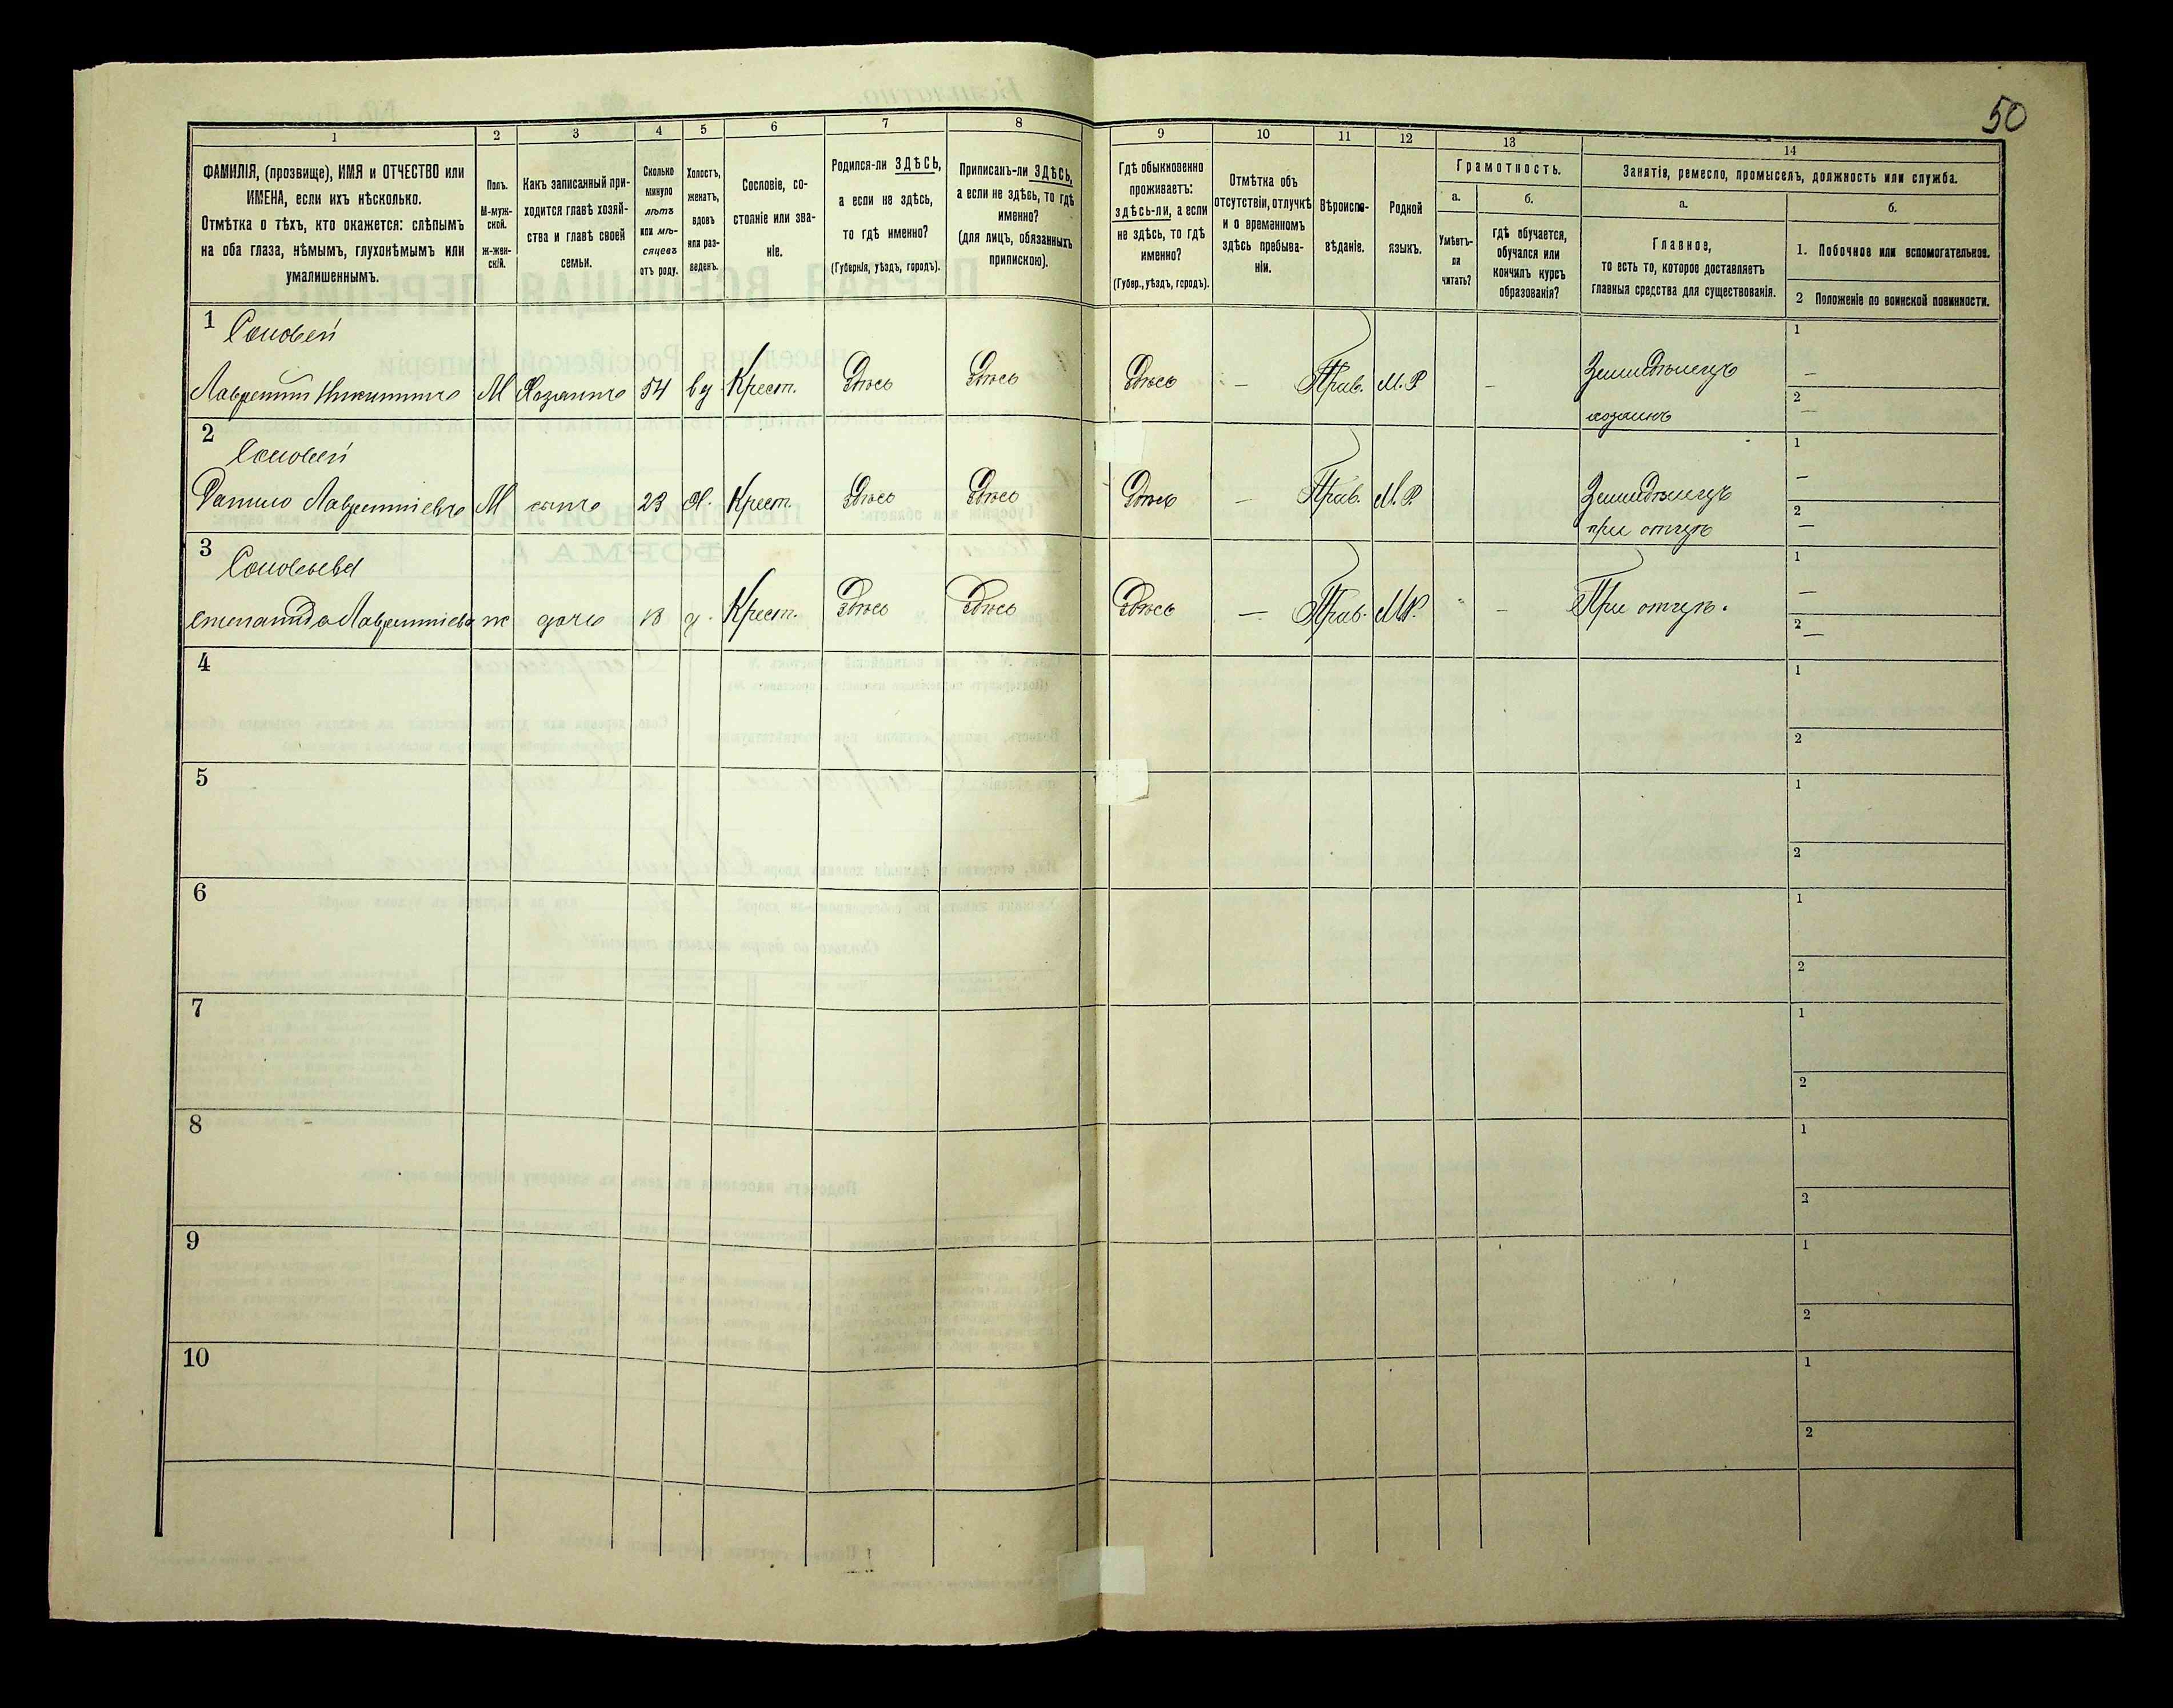 50
1 2 3 4 5 6 7 8 9 10 11 12 13 14
ФАМИЛІЯ, (прозвище), ИМЯ и ОТЧЕСТВО или
ИМЕНА, если ихъ нѣсколько.
Отмѣтка о тѣхъ, кто окажется: слѣпымъ
на оба глаза, нѣмымъ, глухонѣмымъ или
умалишеннымъ.
Полъ.
М-муж-
ской.
ж-жен-
скій.
Какъ записанный при-
ходится главѣ хозяй-
ства и главѣ своей
семьи.
Сколько
минуло
лѣтъ
или мѣ-
сяцевъ
отъ роду.
Холостъ,
женатъ,
вдовъ
или раз-
веденъ.
Сословіе, со-
стояніе или зва-
ніе.
Родился-ли ЗДѢСЬ,
а если не здѣсь,
то гдѣ именно?
(Губернія, уѣздъ, городъ).
Приписанъ-ли ЗДѢСЬ,
а если не здѣсь, то гдѣ
именно?
(для лицъ, обязанныхъ
припискою).
Гдѣ обыкновенно
проживаетъ:
здѣсь-ли, а если
не здѣсь, то гдѣ
именно?
(Губер., уѣздъ, городъ).
Отмѣтка объ
отсутствіи, отлучкѣ
и о временномъ
здѣсь пребыва-
ніи.
Вѣроиспо-
вѣданіе.
Родной
языкъ.
Грамотность.
а.
Умѣетъ-
ли
читать?
б.
гдѣ обучается,
обучался или
кончилъ курсъ
образованія?
Занятія, ремесло, промыселъ, должность или служба.
а.
Главное,
то есть то, которое доставляетъ
главныя средства для существованія.
б.
1. Побочное или вспомогательное.
2 Положеніе по воинской повинности.
1 Соловей
Лаврентий Никитинъ М Хозяинъ 54 вд Крест. Здѣсь Здѣсь Здѣсь — Прав. М.Р — Земледѣлецъ
хозяинъ
1 —
2 —
2 Соловей
Данило Лаврентіевъ М сынъ 23 Х. Крест. Здѣсь Здѣсь Здѣсь — Прав. М.Р Земледѣлецъ
при отцѣ
1 —
2 —
3 Соловьева
Степанида Лаврентіева ж дочь 13 д. Крест. Здѣсь Здѣсь Здѣсь — Прав. М.Р. — При отцѣ.
1 —
2 —
4 1
2
5 1
2
6 1
2
7 1
2
8 1
2
9 1
2
10 1
2